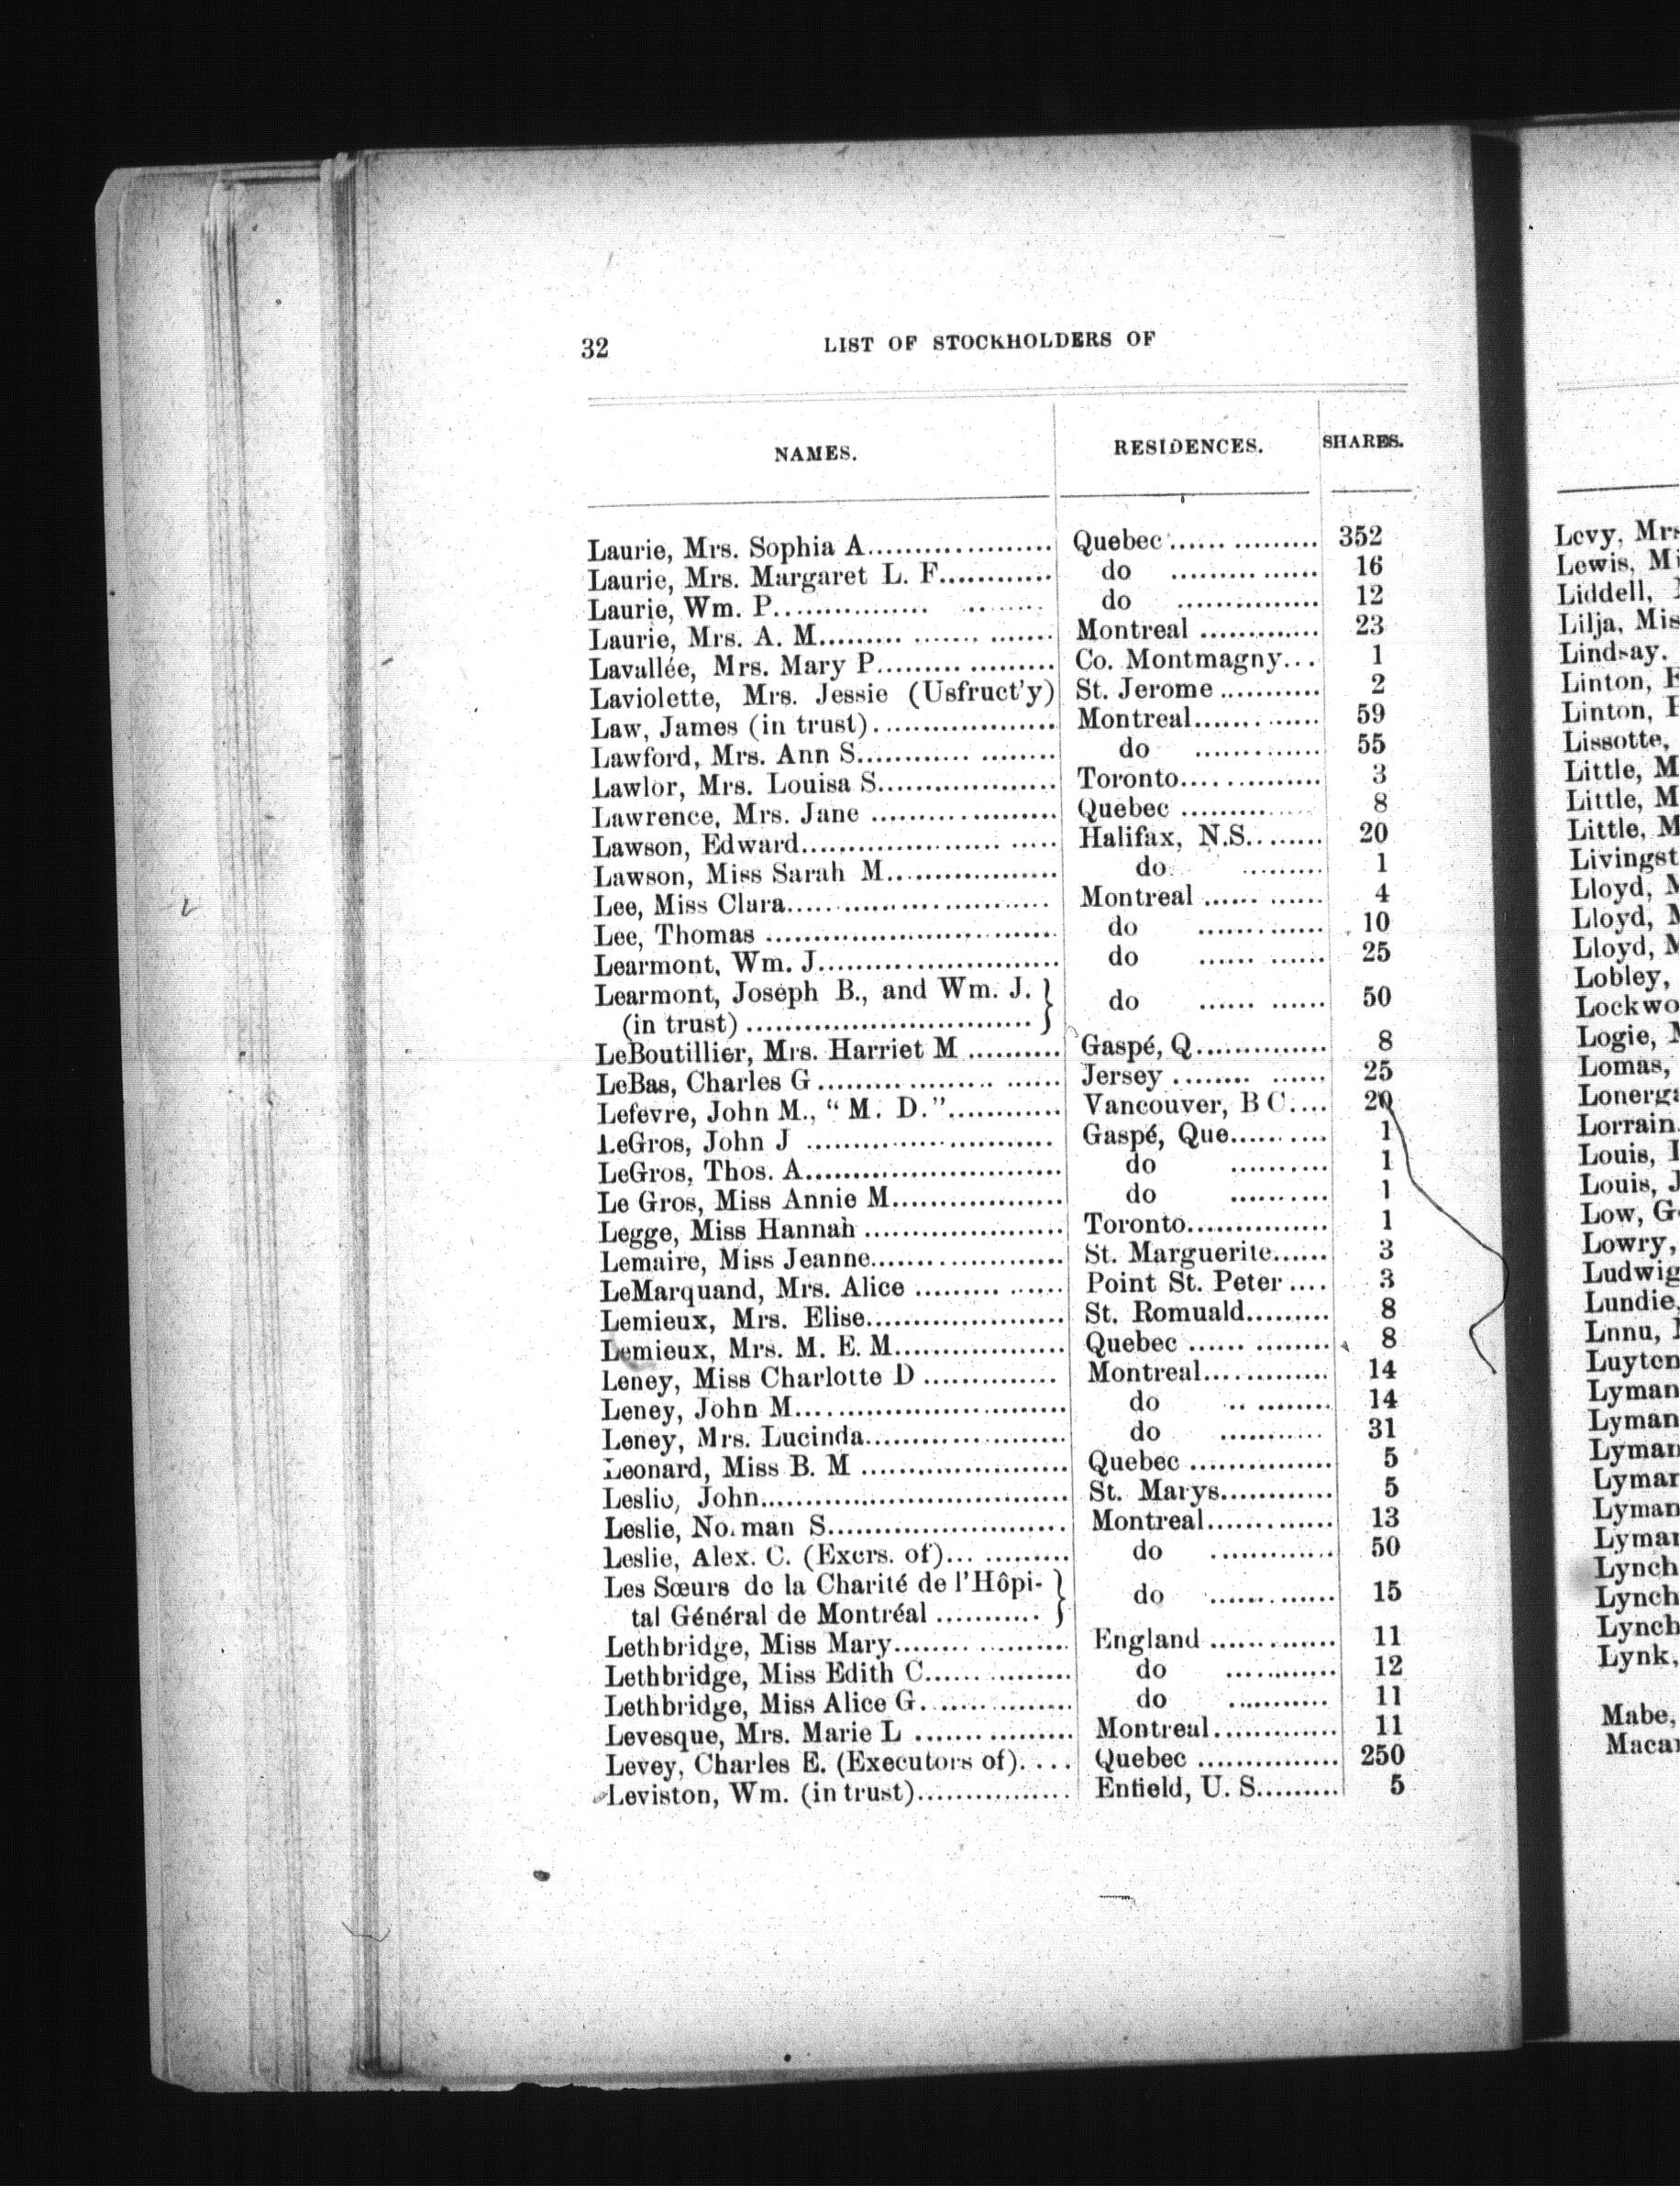 32 LIST OF STOCKHOLDERS OF
NAMES. RESIDENCES. SHARES.
Laurie, Mrs. Sophia A.................... Quebec ................ 352
Laurie, Mrs. Margaret L. F............ do ............... 16
Laurie, Wm. P........................ do ............... 12
Laurie, Mrs. A. M........................ Montreal ............. 23
Lavallée, Mrs. Mary P................... Co. Montmagny... 1
Laviolette, Mrs. Jessie (Usfruct'y) St. Jerome ........... 2
Law, James (in trust)................... Montreal............. 59
Lawford, Mrs. Ann S..................... do ............. 55
Lawlor, Mrs. Louisa S................... Toronto............... 3
Lawrence, Mrs. Jane ................... Quebec .............. 8
Lawson, Edward.......................... Halifax, N.S........ 20
Lawson, Miss Sarah M.................. do ......... 1
Lee, Miss Clara........................... Montreal ............ 4
Lee, Thomas .............................. do ............. 10
Learmont, Wm. J......................... do ............ 25
Learmont, Joseph B., and Wm. J. }
(in trust) .............................. } do ............ 50
LeBoutillier, Mrs. Harriet M .......... Gaspé, Q.............. 8
LeBas, Charles G ......................... Jersey .............. 25
Lefevre, John M., "M. D."............ Vancouver, B C.... 20
LeGros, John J .......................... Gaspé, Que.......... 1
LeGros, Thos. A........................... do .......... 1
Le Gros, Miss Annie M.................. do .......... 1
Legge, Miss Hannah ..................... Toronto............... 1
Lemaire, Miss Jeanne.................... St. Marguerite...... 3
LeMarquand, Mrs. Alice ............... Point St. Peter .... 3
Lemieux, Mrs. Elise..................... St. Romuald......... 8
Lemieux, Mrs. M. E. M.................. Quebec .............. 8
Leney, Miss Charlotte D .............. Montreal............. 14
Leney, John M............................ do .......... 14
Leney, Mrs. Lucinda..................... do ........... 31
Leonard, Miss B. M ...................... Quebec ............... 5
Leslie, John................................. St. Marys............ 5
Leslie, No.man S......................... Montreal............. 13
Leslie, Alex. C. (Exers. of)............ do ............. 50
Les Sœurs de la Charité de l'Hôpi- }
tal Général de Montréal ........... } do ............. 15
Lethbridge, Miss Mary.................. England ............. 11
Lethbridge, Miss Edith C............... do ............ 12
Lethbridge, Miss Alice G............... do ........... 11
Levesque, Mrs. Marie L ................ Montreal............. 11
Levey, Charles E. (Executors of).... Quebec ............... 250
Leviston, Wm. (in trust)................ Enfield, U. S......... 5
Levy, Mrs
Lewis, Mi
Liddell,
Lilja, Mis
Lindsay.
Linton,
Linton,
Lissotte,
Little, M
Little, M
Little, M
Livingst
Lloyd,
Lloyd,
Lloyd,
Lobley,
Lockwo
Logie,
Lomas,
Lonerga
Lorrain
Louis,
Louis,
Low, G
Lowry,
Ludwig
Lundie
Lnnu,
Luyten
Lyman
Lyman
Lyman
Lyman
Lyman
Lyman
Lynch
Lynch
Lynch
Lynk,
Mabe,
Macar